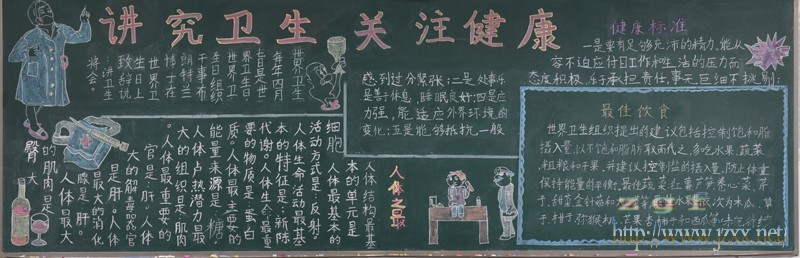 讲究卫生 关注健康
世界卫生
每年四月
七日是世
界卫生日
生日组织
干事布
朗特兰
博士在
世界卫
生日上
致辞说
：讲卫生
将会。
健康标准
一是要有足够充沛的精力，能从
容不迫应付日工作和生活的压力而
感到过分紧张；二是处事乐
态度积极，乐于承担责任，事无巨细不挑剔；
是善于休息，睡眠良好；四是应
力强，能适应外界环境的
变化；五是能够抵抗一般
人体之最
人体结构最基
本的单元是
细胞
人体最基本的
活动方式是：反射。
人体生命活动最基
本的特征是：新陈
代谢。人体生命最重
要的物质是：蛋白
质。人体最主要的
能量来源是：糖。
人体卢热潜力最
大的组织是：肌肉
。人体最重要的
官是：肝。人体
大的解毒器官
是：肝。人体
最大的消化
腺是：肝。
人体最大
的肌肉是
臀大
最佳饮食
世界卫生组织提出的建议包括控制饱和脂
肪摄入量，以不饱和脂肪取而代之，多吃水果、蔬菜
、粗粮和干果，并建议控制盐的摄入量，防止体重
保持能量的平衡。最佳蔬菜：红薯芦笋卷心菜、茄
子、甜菜金针菇和
水果：依次为木瓜、草
子、柑子、猕猴桃、芒果杏柿子和西瓜等
http://www.yzxx.net